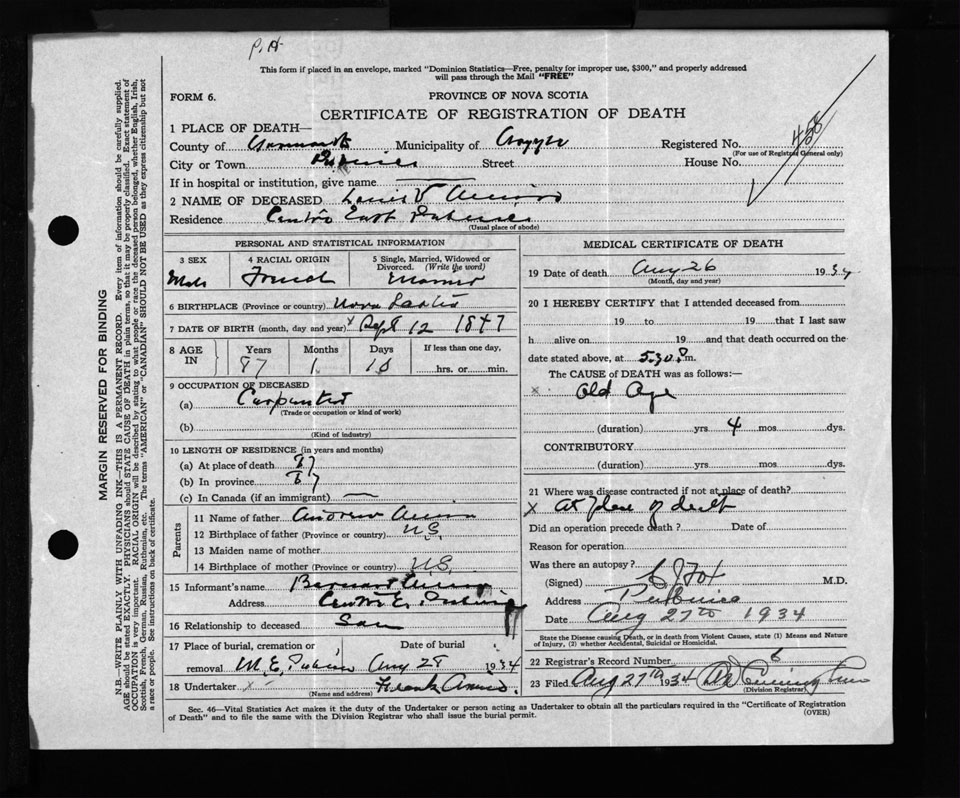 P.H.
This form if placed in an envelope, marked "Dominion Statistics—Free, penalty for improper use, $300," and properly addressed
will pass through the Mail "FREE"
FORM 6.
PROVINCE OF NOVA SCOTIA
CERTIFICATE OF REGISTRATION OF DEATH
1 PLACE OF DEATH—
County of Yarmouth Municipality of Argyle Registered No. 458
(For use of Registrar General only)
City or Town Street House No.
If in hospital or institution, give name
2 NAME OF DECEASED Louis V
Residence Centre East Pubnico
(Usual place of abode)
PERSONAL AND STATISTICAL INFORMATION
3 SEX
Male
4 RACIAL ORIGIN
French
5 Single, Married, Widowed or
Divorced. (Write the word)
6 BIRTHPLACE (Province or country) Nova Scotia
7 DATE OF BIRTH (month, day and year) x Sept 12 1847
8 AGE IN
Years Months Days If less than one day,
87 1 hrs. or min.
9 OCCUPATION OF DECEASED
(a) Carpenter
(Trade or occupation or kind of work)
(b)
(Kind of industry)
10 LENGTH OF RESIDENCE (in years and months)
(a) At place of death 87
(b) In province 87
(c) In Canada (if an immigrant) —
Parents
11 Name of father Andrew
12 Birthplace of father (Province or country) N.S.
13 Maiden name of mother
14 Birthplace of mother (Province or country) N.S.
15 Informant's name
Address Centre E. Pubnico
16 Relationship to deceased Son
17 Place of burial, cremation or
removal M. E. Pubnico
Date of burial
Aug 28 1934
18 Undertaker x Frank
(Name and address)
MEDICAL CERTIFICATE OF DEATH
19 Date of death Aug 26 1934
(Month, day and year)
20 I HEREBY CERTIFY that I attended deceased from
19 to 19 that I last saw
h alive on 19 and that death occurred on the
date stated above, at 5.30 P m.
The CAUSE of DEATH was as follows:—
x Old Age
(duration) yrs 4 mos dys.
CONTRIBUTORY
(duration) yrs. mos. dys.
21 Where was disease contracted if not at place of death?
x At place of death
Did an operation precede death? Date of
Reason for operation
Was there an autopsy?
(Signed) Fox M.D.
Address Pubnico
Date Aug 27th 1934
State the Disease causing Death, or in death from Violent Causes, state (1) Means and Nature
of Injury, (2) whether Accidental, Suicidal or Homicidal.
22 Registrar's Record Number 6
23 Filed Aug 27th 1934
(Division Registrar)
Sec. 46—Vital Statistics Act makes it the duty of the Undertaker or person acting as Undertaker to obtain all the particulars required in the "Certificate of Registration
of Death" and to file the same with the Division Registrar who shall issue the burial permit.
(OVER)
MARGIN RESERVED FOR BINDING
N.B.—WRITE PLAINLY WITH UNFADING INK—THIS IS A PERMANENT RECORD. Every item of information should be carefully supplied.
AGE should be stated EXACTLY. PHYSICIANS should STATE CAUSE OF DEATH in plain terms, so that it may be properly classified. Exact statement of
OCCUPATION is very important. RACIAL ORIGIN will be described by stating to what people or race the deceased person belonged, whether English, Irish,
Scottish, French, German, Russian, Ruthenian, etc. The terms "AMERICAN" or "CANADIAN" SHOULD NOT BE USED as they express citizenship but not
a race or people. See instructions on back of certificate.